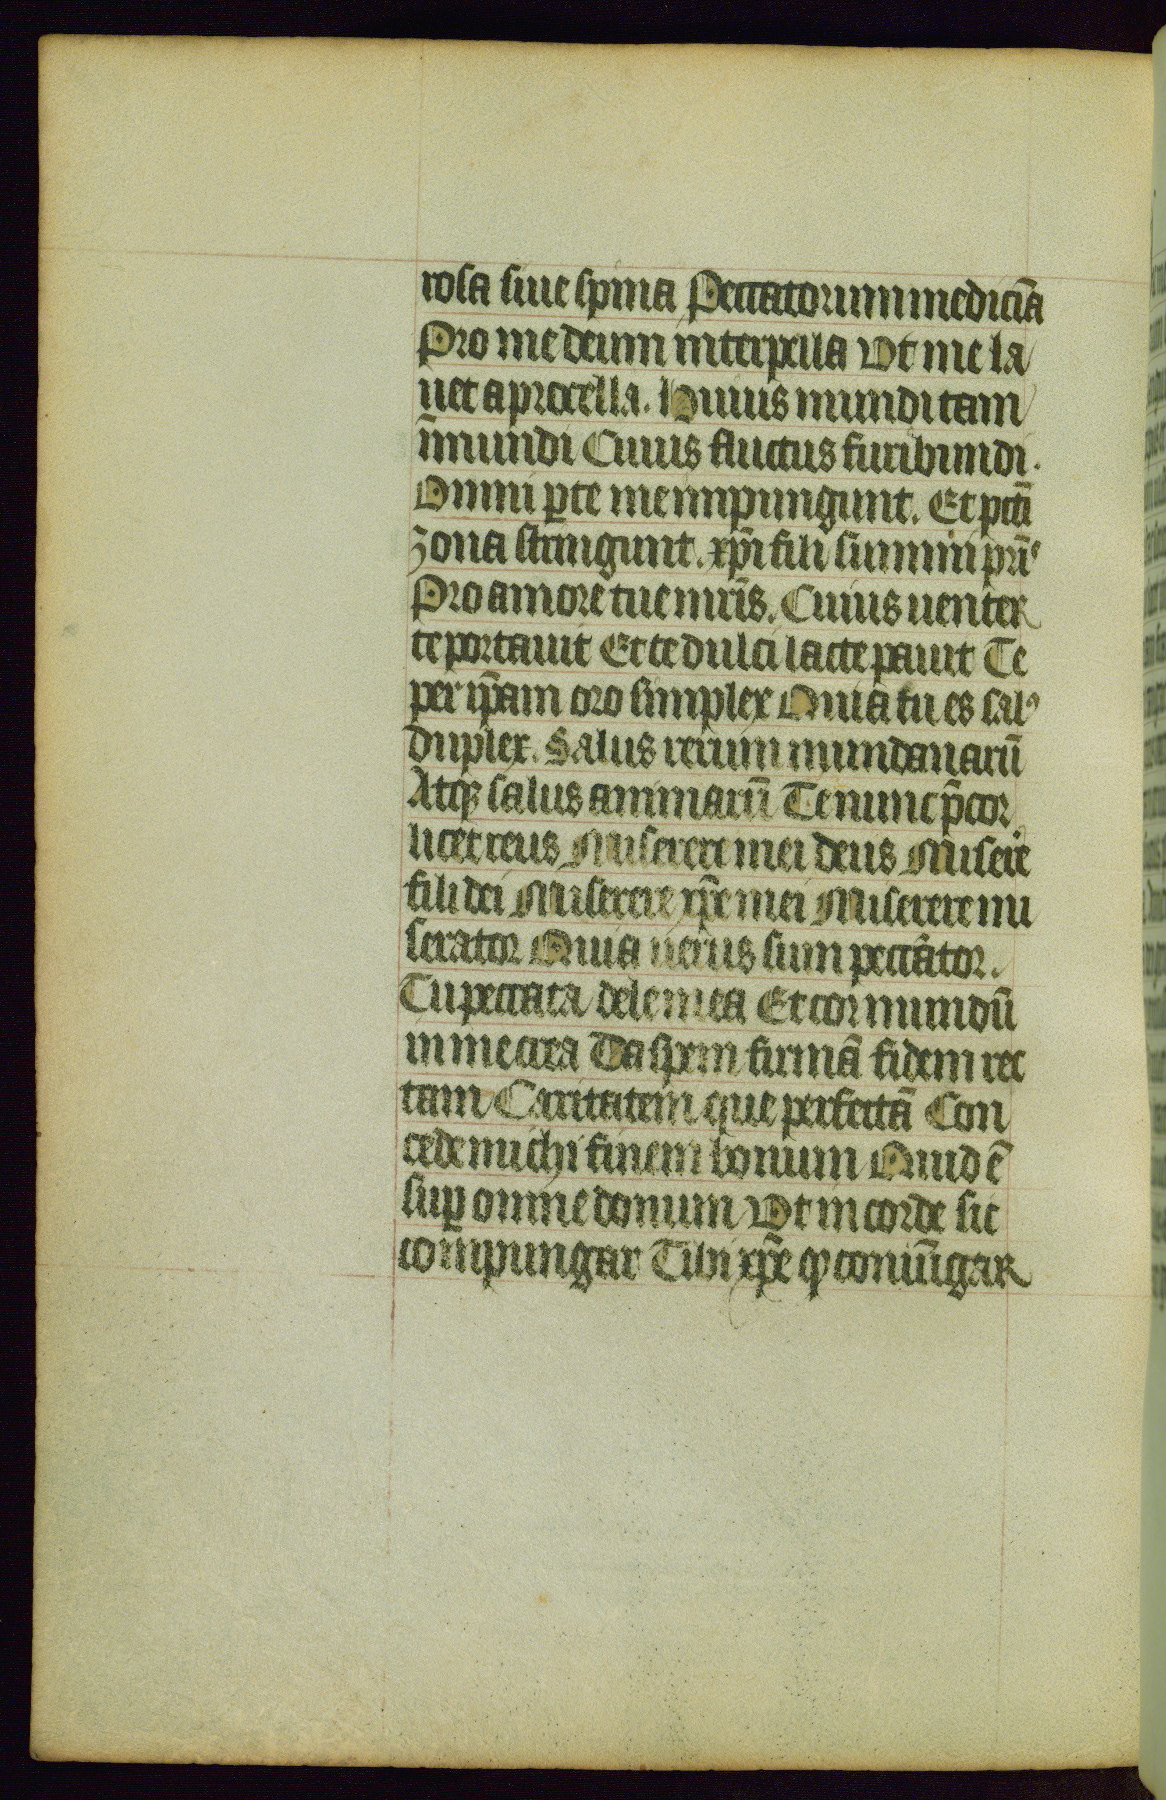 rosa siue spina Peccatorum medicīa
Pro me deum interpella Vt me la
uet a procella. Huius mundi tam
īmundi Cuius fluctus furibundi.
Omni ꝑte me inpungunt. Et pctī
zona stringunt. xp̄i fili summi pr̄is
Pro amore tue mr̄is. Cuius uenter
te portauit Et te dulci lacte pauit Te
per ip̄am oro simplex Quia tu es salꝰ
duplex. Salus rerum mundanarū
Atqꝫ salus animarū Te nunc p̄cor
licet reus Miserere mei deus Misere
fili dei Miserere xp̄e mei Miserere mi
serator Quia uerus sum peccator.
Tu peccata dele mea Et cor mundū
in me crea Da spem firmā fidem rec
tam Caritatem que perfectā Con
cede michi finem bonum Quid ē
suꝑ omne donum Vt in corde sic
compungar Tibi xp̄e ꝙ coniūgar